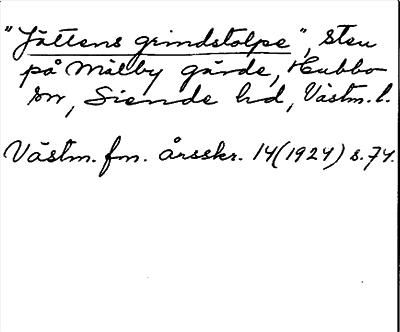 "Jättens grindstolpe", sten
på Målby gärde, Hubbo
sn, Siende hd, Västm. l.
Västm. fm. årsskr. 14(1924) s. 74.